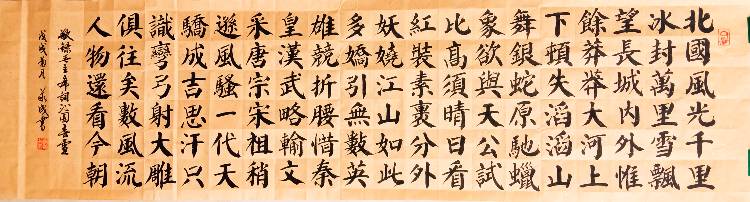 北國風光千里
冰封萬里雪飄
望長城內外惟
餘莽莽大河上
下頓失滔滔山
舞銀蛇原馳蠟
象欲與天公試
比高須晴日看
紅裝素裹分外
妖嬈江山如此
多嬌引無數英
雄競折腰惜秦
皇漢武略輸文
采唐宗宋祖稍
遜風騷一代天
驕成吉思汗只
識彎弓射大雕
俱往矣數風流
人物還看今朝
敬録毛主席詞沁園春雪
戊戌菊月成書